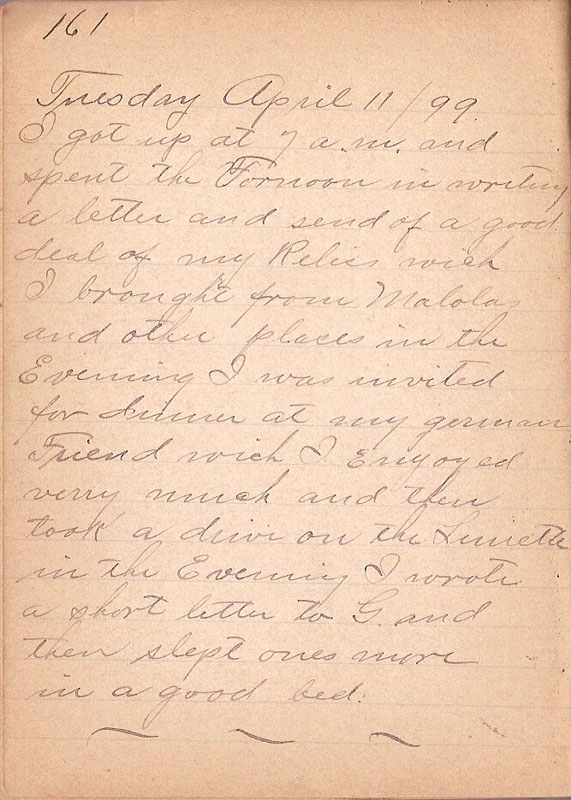 161
Tuesday April 11/99
I got up at 7 a.m. and
spent the Fornoon in writing
a letter and send of a good
deal of my Relics wich
I brought from Malolas
and other places in the
Evening I was invited
for dinner at my german
Friend wich I Enyoyed
verry much and then
took a drive on the Lunette
in the Evening I wrote
a short letter to G. and
then slept ones more
in a good bed.